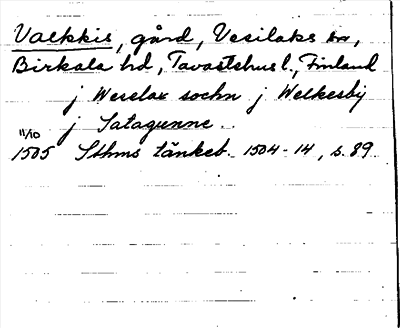 Valkkis, gård, Vesilaks sn,
Birkala hd, Tavastehus l., Finland
j Weselax sochn j Welkesby
j Satagunne.
11/10
1505 Sthms tänkeb. 1504-14, s. 89.